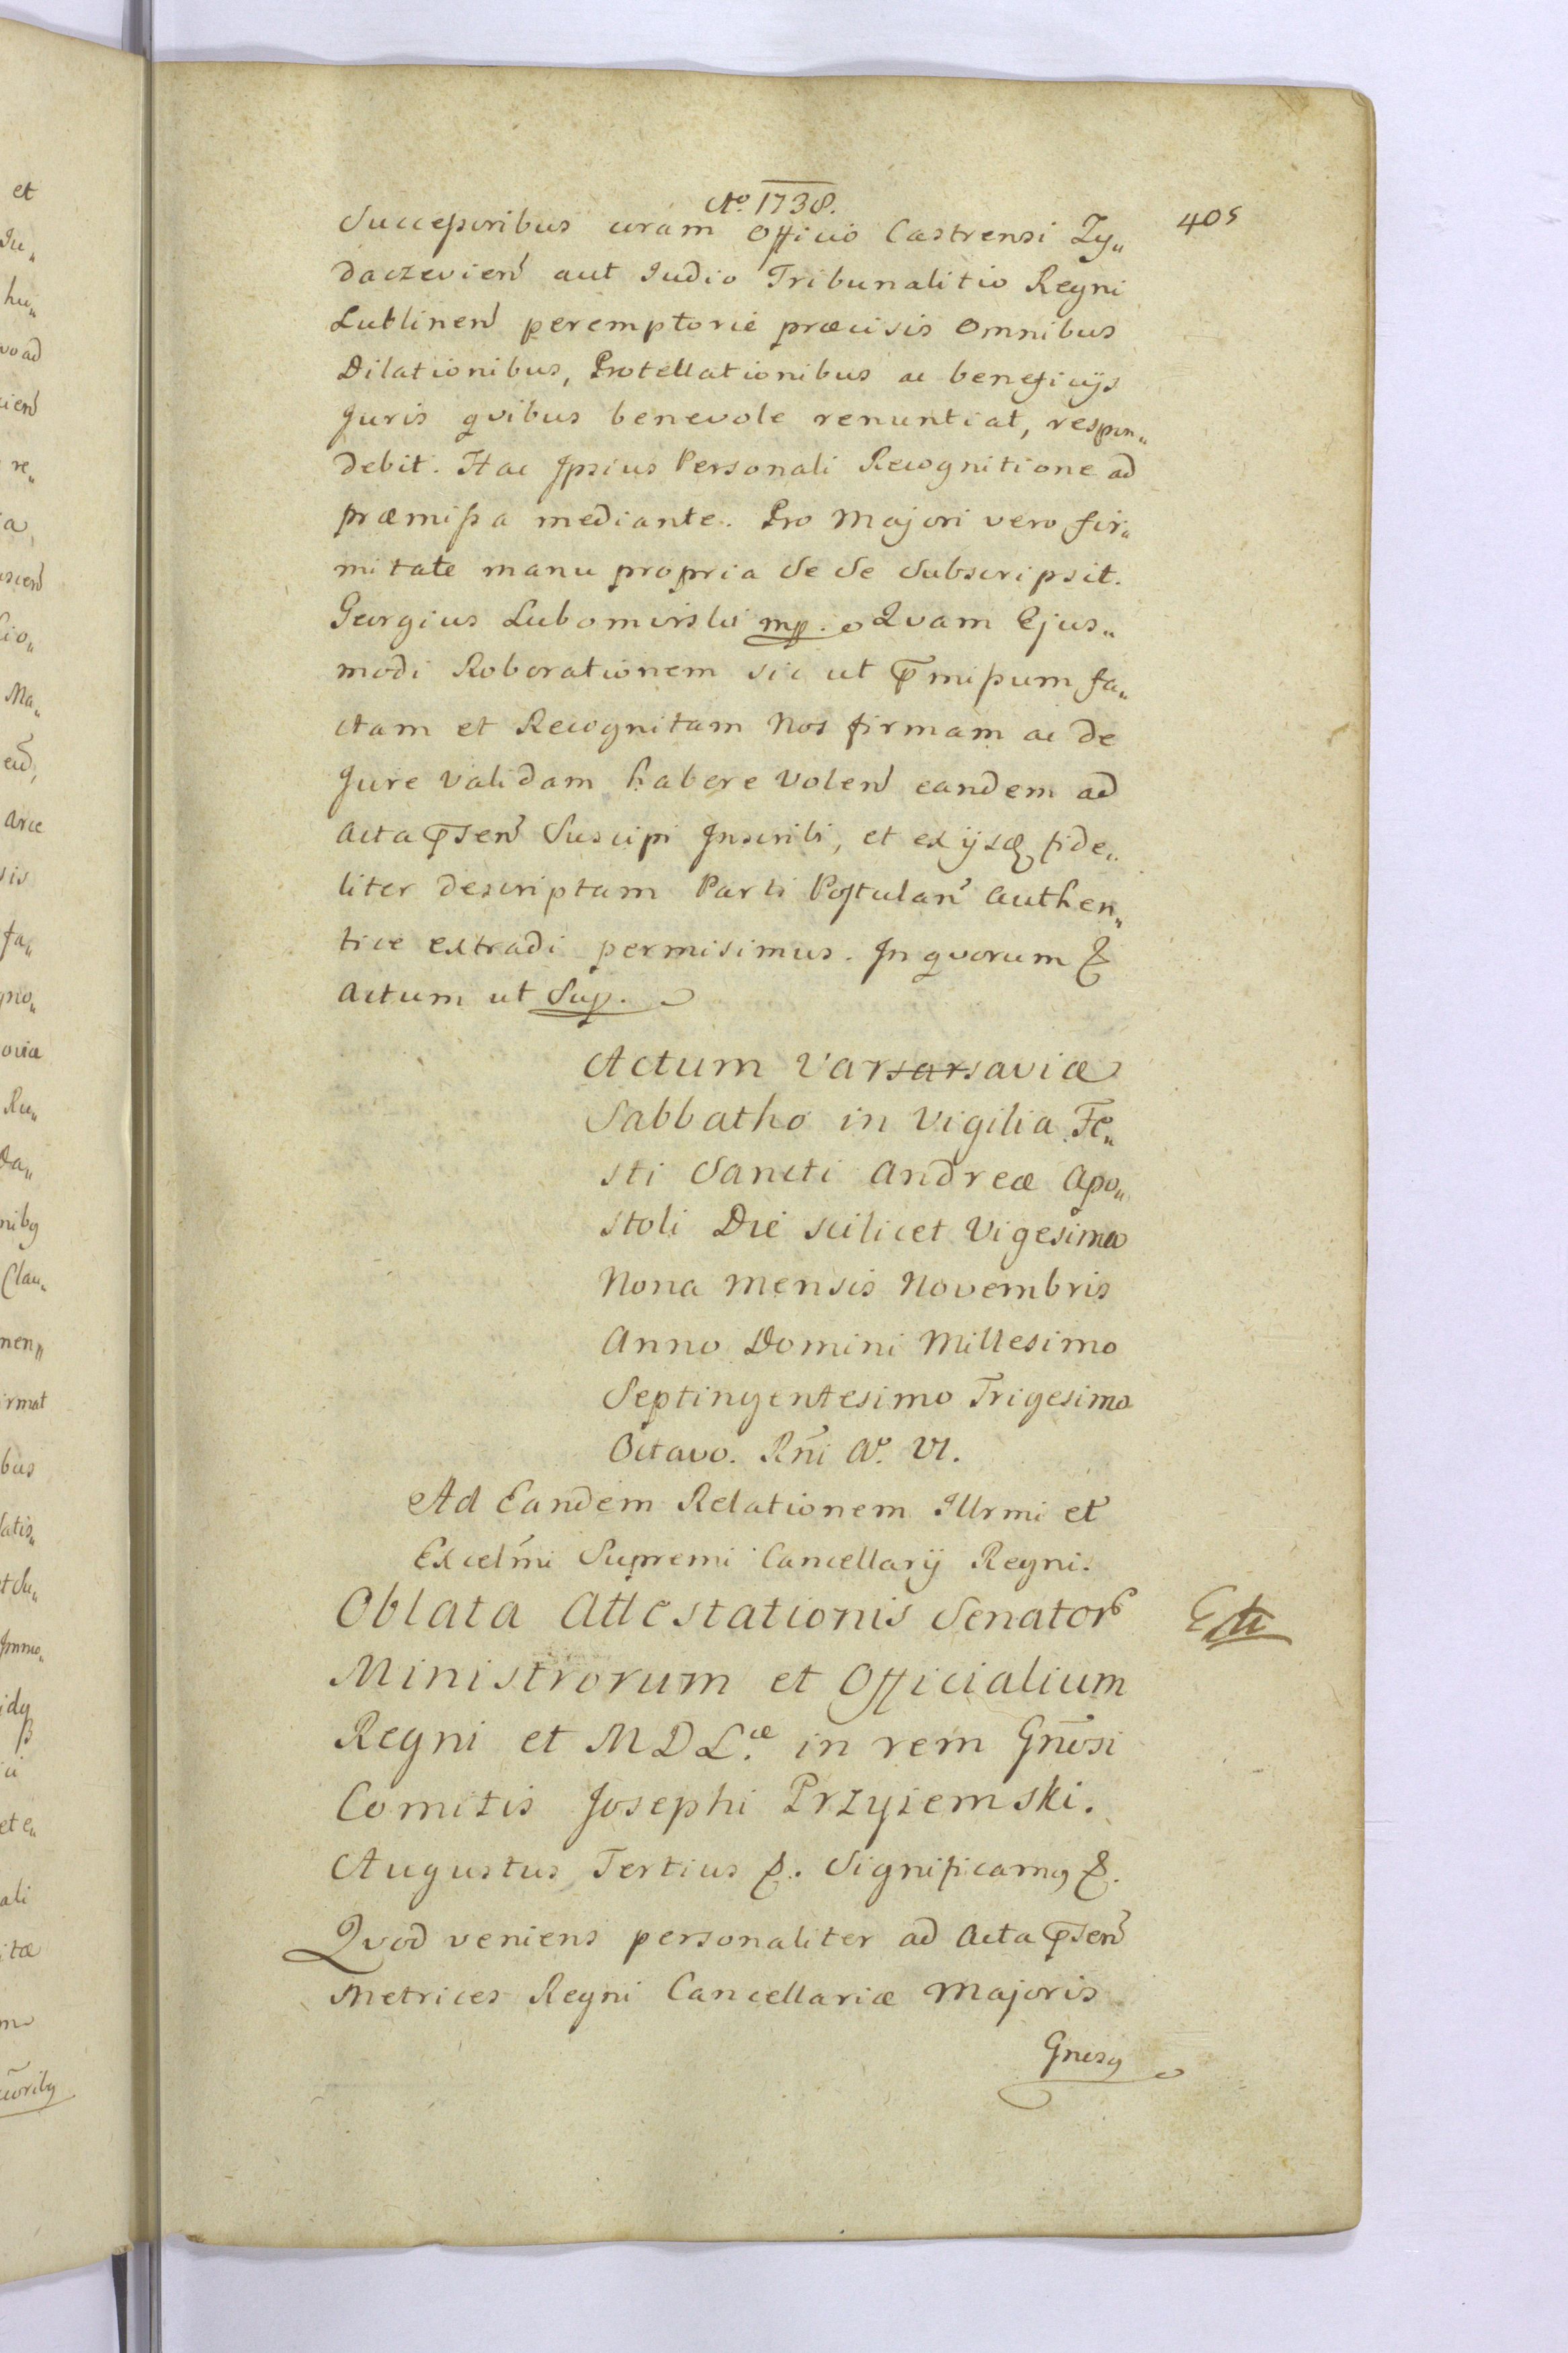 Aº. 1738.
405
Successoribus coram Officio Castrensi Zy„
daczevien̄ aut Iudio Tribunalitio Regni
Lublinen̄ peremptorie præcisis Omnibus
Dilationibus, Protellationibus ac beneficijs
Juris qvibus benevole renuntiat, respon„
debit. Hac Jpsius Personali Recognitione ad
præmissa mediante. Pro Majori vero fir„
mitate manu propria Se Se Subscripsit.
Georgius Lubomirski mp. Qvam Ejus„
modi Roborationem sic ut p̄missum fa„
ctam et Recognitam Nos firmam ac de
Jure validam habere volen̄ eandem ad
Acta p̄sen̄ Suscipi Jnscribi, et ex ijsdē fide„
liter descriptam Parti Postulan̄ Authen„
tice extradi permisimus. Jn qvorum &
Actum ut Sup.
Actum Varsarsaviæ
Sabbatho in Vigilia Fe„
sti Sancti Andreæ Apo„
stoli Die scilicet Vigesima
Nona Mensis Novembris
Anno Domini Millesimo
Septingentesimo Trigesimo
Octavo. Rn̄i Aº. VI.
Ad Eandem Relationem Illrmi et
Excel̄mi Supremi Cancellarij Regni.
Oblata Attestationis Senator
Ministrorum et Officialium
Regni et M D L.æ in rem Gn̄osi
Comitis Josephi Przyiemski.
Augustus Tertius &. Significamꝰ &.
Qvod veniens personaliter ad Acta p̄sen̄
Metrices Regni Cancellariæ Majoris
Gnosꝰ